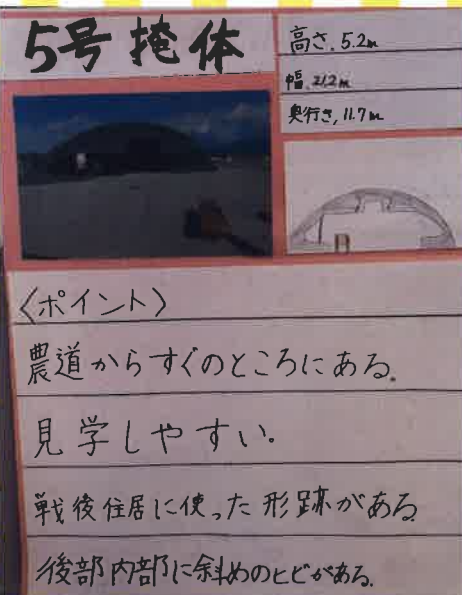 5号掩体
高さ.5.2m
幅.21.2m
奥行き,11.7m
〈ポイント〉
農道からすぐのところにある.
見学しやすい。
戦後住居に使った形跡がある.
後部内部に斜めのヒビがある.